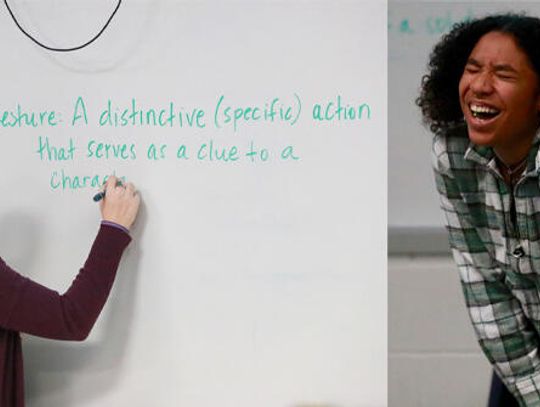 esture: A distinctive (specific) action
that serves as a clue to a
charac
a sol